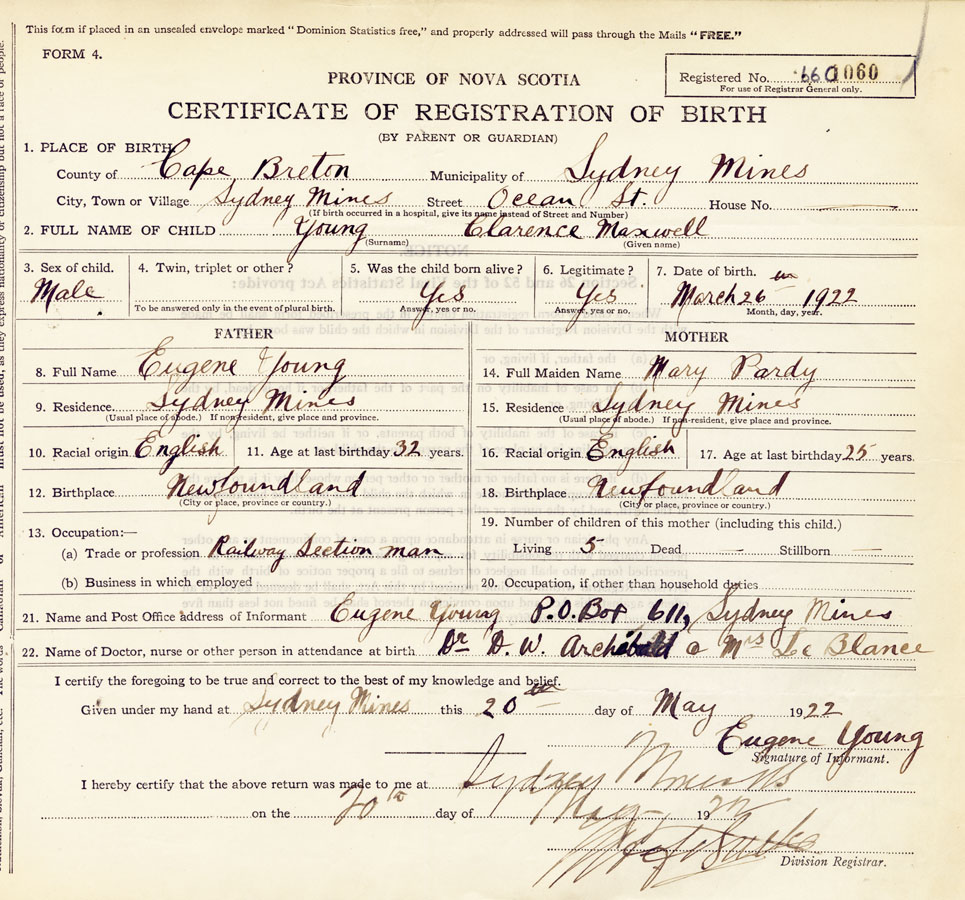 This form if placed in an unsealed envelope marked "Dominion Statistics free," and properly addressed will pass through the Mails "FREE."
FORM 4.
Registered No. 660 1060
For use of Registrar General only.
PROVINCE OF NOVA SCOTIA
CERTIFICATE OF REGISTRATION OF BIRTH
(BY PARENT OR GUARDIAN)
1. PLACE OF BIRTH
County of Cape Breton Municipality of Sydney Mines
City, Town or Village Sydney Mines Street Ocean St. House No. —
(If birth occurred in a hospital, give its name instead of Street and Number)
2. FULL NAME OF CHILD Young Clarence Maxwell
(Surname) (Given name)
3. Sex of child. 4. Twin, triplet or other? 5. Was the child born alive? 6. Legitimate? 7. Date of birth.
Male Yes Yes March 26th 1922
To be answered only in the event of plural birth. Answer, yes or no. Answer, yes or no. Month, day, year.
FATHER MOTHER
8. Full Name Eugene Young 14. Full Maiden Name Mary Pardy
9. Residence Sydney Mines 15. Residence Sydney Mines
(Usual place of abode.) If non-resident, give place and province. (Usual place of abode.) If non-resident, give place and province.
10. Racial origin English 11. Age at last birthday 32 years. 16. Racial origin English 17. Age at last birthday 25 years.
12. Birthplace Newfoundland 18. Birthplace Newfoundland
(City or place, province or country.) (City or place, province or country.)
13. Occupation:— 19. Number of children of this mother (including this child.)
(a) Trade or profession Railway Section man Living 5 Dead — Stillborn —
(b) Business in which employed 20. Occupation, if other than household duties
21. Name and Post Office address of Informant Eugene Young P.O. Box 611, Sydney Mines
22. Name of Doctor, nurse or other person in attendance at birth Dr D. W. Archibald & Mrs Le Blance
I certify the foregoing to be true and correct to the best of my knowledge and belief.
Given under my hand at Sydney Mines this 20th day of May 1922
Eugene Young
Signature of Informant.
I hereby certify that the above return was made to me at Sydney Mines
on the 20th day of May 1922
Division Registrar.